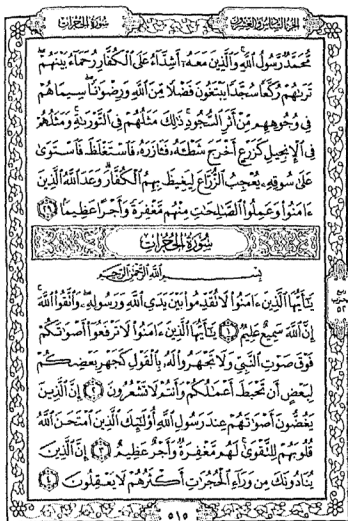 الجزء السادس والعشرون سورة الحجرات
مُّحَمَّدٌ رَّسُولُ ٱللَّهِ وَٱلَّذِينَ مَعَهُۥٓ أَشِدَّآءُ عَلَى ٱلْكُفَّارِ رُحَمَآءُ بَيْنَهُمْ
تَرَىٰهُمْ رُكَّعًا سُجَّدًا يَبْتَغُونَ فَضْلًا مِّنَ ٱللَّهِ وَرِضْوَٰنًا سِيمَاهُمْ
فِى وُجُوهِهِم مِّنْ أَثَرِ ٱلسُّجُودِ ذَٰلِكَ مَثَلُهُمْ فِى ٱلتَّوْرَىٰةِ وَمَثَلُهُمْ
فِى ٱلْإِنجِيلِ كَزَرْعٍ أَخْرَجَ شَطْـَٔهُۥ فَـَٔازَرَهُۥ فَٱسْتَغْلَظَ فَٱسْتَوَىٰ
عَلَىٰ سُوقِهِۦ يُعْجِبُ ٱلزُّرَّاعَ لِيَغِيظَ بِهِمُ ٱلْكُفَّارَ وَعَدَ ٱللَّهُ ٱلَّذِينَ
ءَامَنُوا۟ وَعَمِلُوا۟ ٱلصَّـٰلِحَـٰتِ مِنْهُم مَّغْفِرَةً وَأَجْرًا عَظِيمًۢا ٢٩
سُورَةُ الحُجُرَاتِ
بِسْمِ ٱللَّهِ ٱلرَّحْمَـٰنِ ٱلرَّحِيمِ
يَـٰٓأَيُّهَا ٱلَّذِينَ ءَامَنُوا۟ لَا تُقَدِّمُوا۟ بَيْنَ يَدَىِ ٱللَّهِ وَرَسُولِهِۦ وَٱتَّقُوا۟ ٱللَّهَ
إِنَّ ٱللَّهَ سَمِيعٌ عَلِيمٌ ١ يَـٰٓأَيُّهَا ٱلَّذِينَ ءَامَنُوا۟ لَا تَرْفَعُوٓا۟ أَصْوَٰتَكُمْ
فَوْقَ صَوْتِ ٱلنَّبِىِّ وَلَا تَجْهَرُوا۟ لَهُۥ بِٱلْقَوْلِ كَجَهْرِ بَعْضِكُمْ
لِبَعْضٍ أَن تَحْبَطَ أَعْمَـٰلُكُمْ وَأَنتُمْ لَا تَشْعُرُونَ ٢ إِنَّ ٱلَّذِينَ
يَغُضُّونَ أَصْوَٰتَهُمْ عِندَ رَسُولِ ٱللَّهِ أُو۟لَـٰٓئِكَ ٱلَّذِينَ ٱمْتَحَنَ ٱللَّهُ
قُلُوبَهُمْ لِلتَّقْوَىٰ لَهُم مَّغْفِرَةٌ وَأَجْرٌ عَظِيمٌ ٣ إِنَّ ٱلَّذِينَ
يُنَادُونَكَ مِن وَرَآءِ ٱلْحُجُرَٰتِ أَكْثَرُهُمْ لَا يَعْقِلُونَ ٤
٥١٥